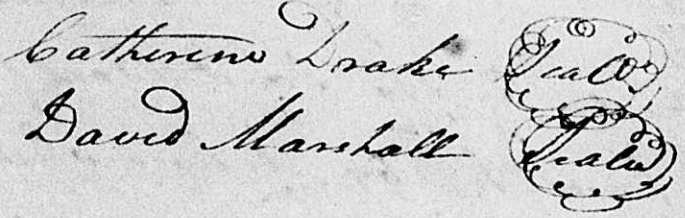 Catherine Drake Seal
David Marshall Seal